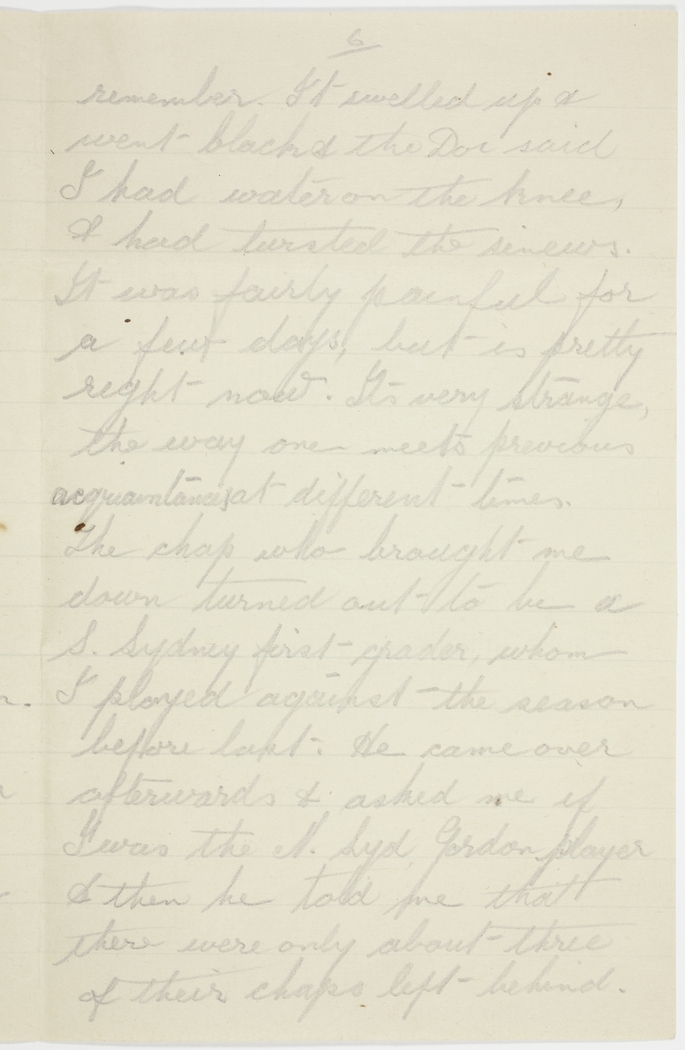 6
remember. It swelled up &
went black & the Doc said
I had water on the knee,
& had twisted the sinews.
It was fairly painful for
a few days, but is pretty
right now. Its very strange,
the way one meets previous
acquaintances at different times.
The chap who brought me
down turned out to be a
S. Sydney first grader, whom
I played against the season
before last. He came over
afterwards & asked me if
I was the N. Syd. Gordon player
& then he told me that
there were only about three
of their chaps left behind.